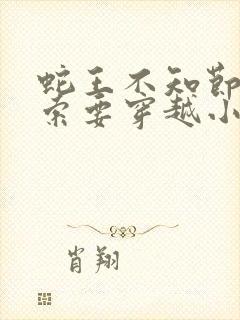 蛇王不知节
索要穿越小
肖翔